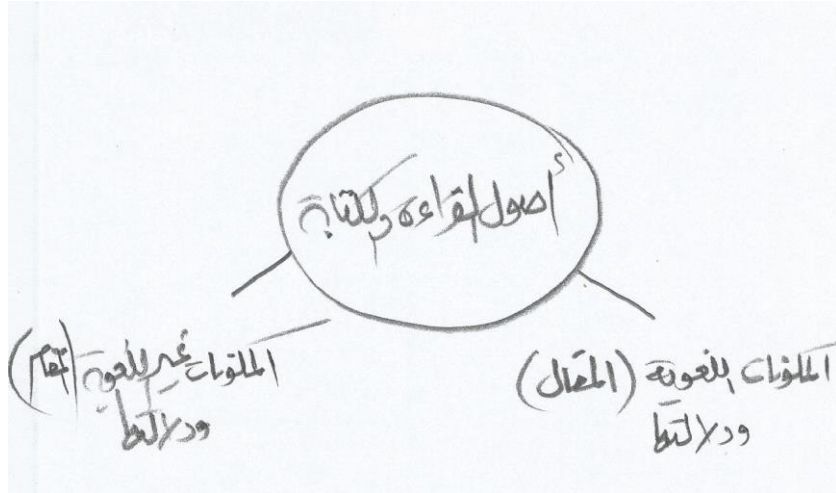 أصول القراءة والكتابة
المكونات اللغوية (المقال)
ودلالتها
المكونات غير اللغوية (المقام)
ودلالتها